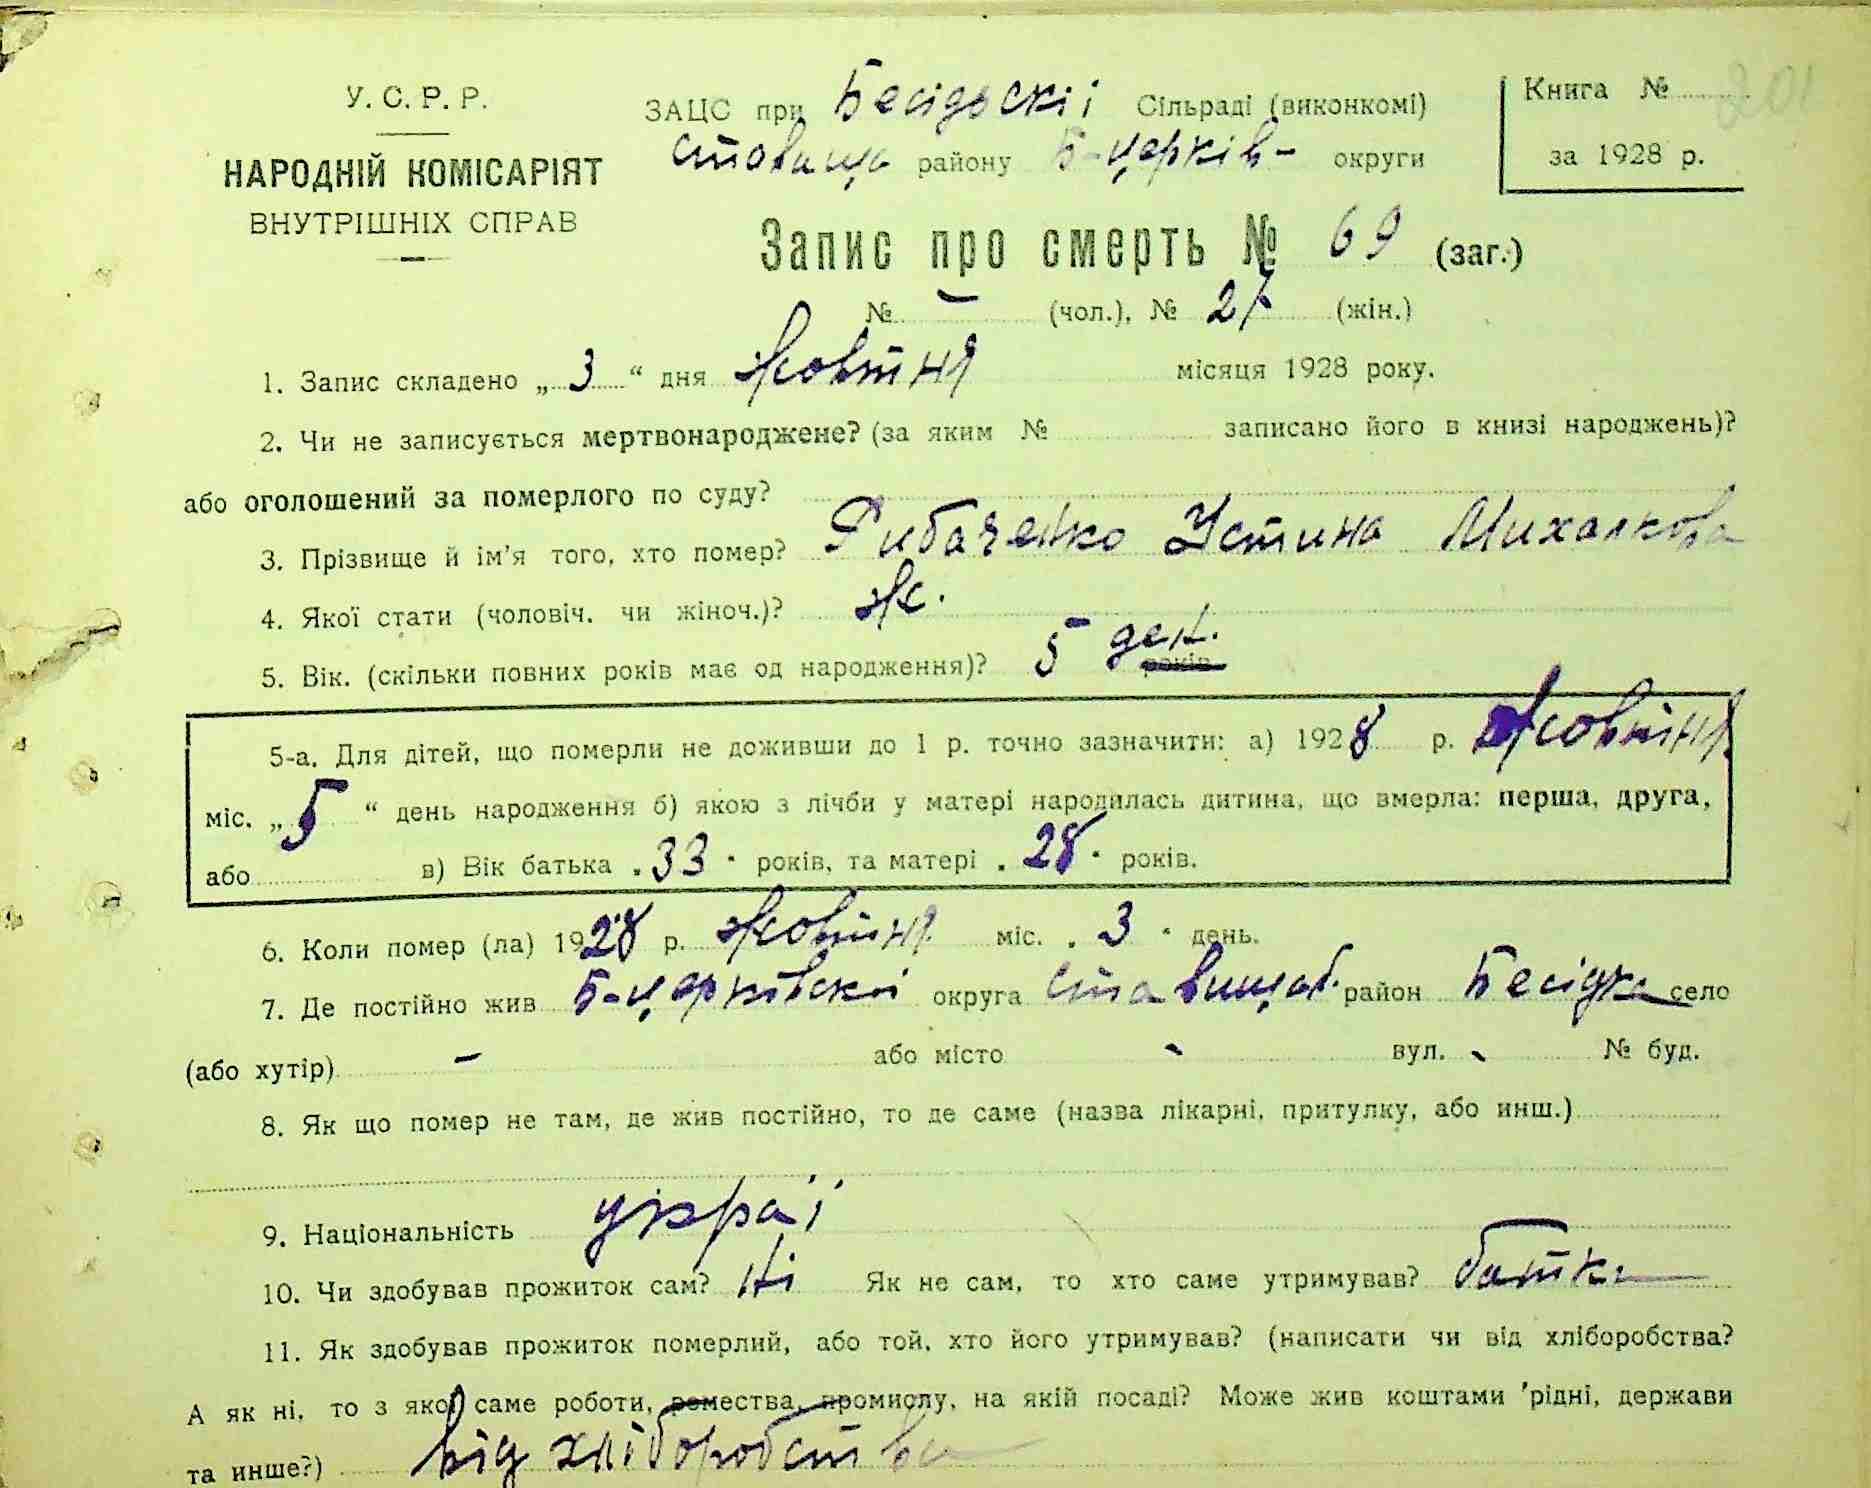 У. С. Р. Р.
НАРОДНІЙ КОМІСАРІЯТ
ВНУТРІШНІХ СПРАВ
ЗАЦС при Бесідьскії Сільраді (виконкомі)
Ставище району Б-церків- округи
Книга № 201
за 1928 р.
Запис про смерть № 69 (заг.)
№ – (чол.), № 27 (жін.)
1. Запис складено „ 3 “ дня жовтня місяця 1928 року.
2. Чи не записується мертвонароджене? (за яким № записано його в книзі народжень)?
або оголошений за померлого по суду?
3. Прізвище й ім'я того, хто помер? Рибаченко Устина Михалкова
4. Якої стати (чоловіч. чи жіноч.)? ж.
5. Вік. (скільки повних років має од народження)? 5 ден. років
5-а. Для дітей, що померли не доживши до 1 р. точно зазначити: а) 1928 р. жовтня
міс. „ 5 “ день народження б) якою з лічби у матері народилась дитина, що вмерла: перша, друга,
або в) Вік батька „33“ років, та матері „28“ років.
6. Коли помер (ла) 1928 р. жовтня міс. „ 3 “ день.
7. Де постійно жив Б-церківскої округа Ставищаб. район Бесідка село
(або хутір) – або місто - вул. - № буд.
8. Як що помер не там, де жив постійно, то де саме (назва лікарні, притулку, або инш.)
9. Національність украї
10. Чи здобував прожиток сам? Ні Як не сам, то хто саме утримував? батьки
11. Як здобував прожиток померлий, або той, хто його утримував? (написати чи від хліборобства?
А як ні, то з якої саме роботи, ремества, промислу, на якій посаді? Може жив коштами рідні, держави
та инше?) від хліборобства